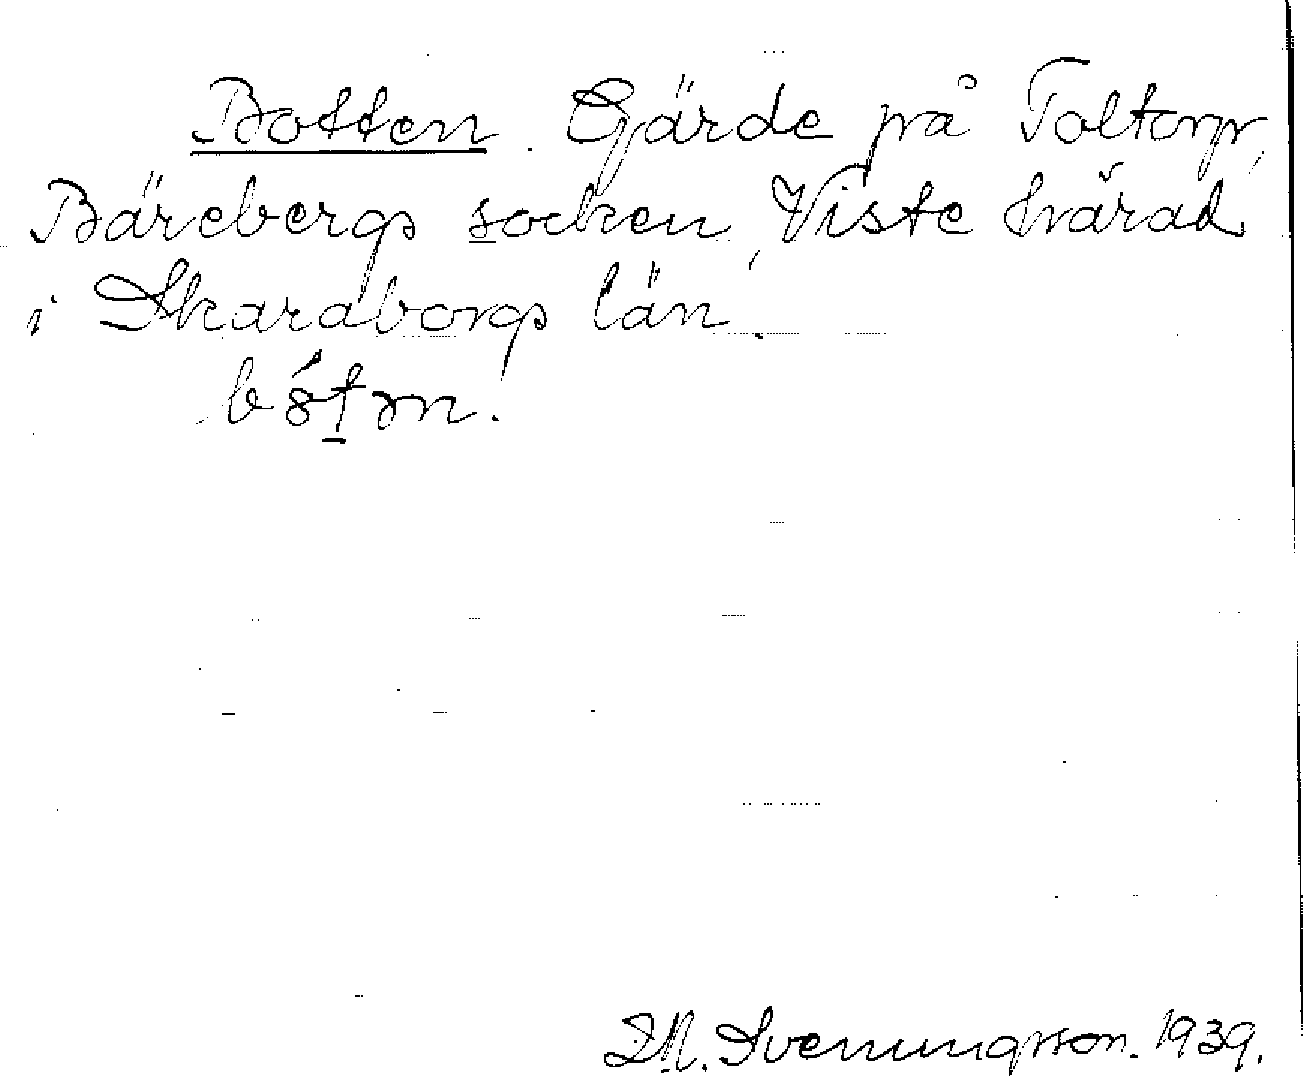 Botten. Gärde på Toltorp,
Bärebergs socken, Viste härad
i Skaraborgs län.
Svenungsson. 1939.